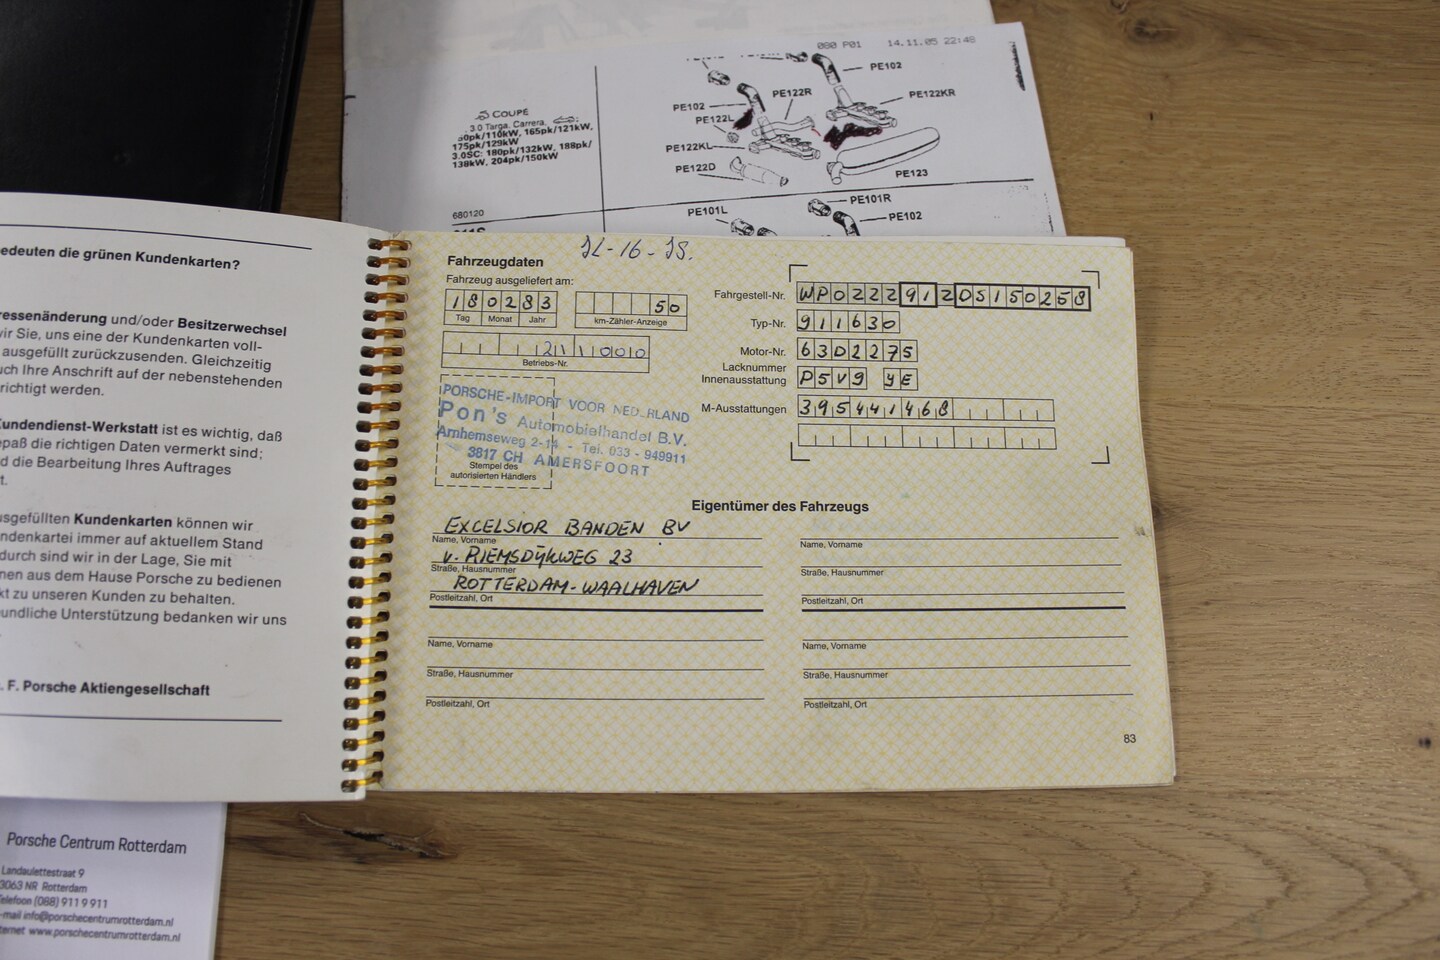 080 P01 14.11.05 22:48
COUPÉ
3.0 Targa, Carrera,
50pk/110kW, 165pk/121kW,
175pk/129kW
3.0SC: 180pk/132kW, 188pk/
138kW, 204pk/150kW
680120
911S
PE102
PE122R
PE122KR
PE102
PE122L
PE122KL
PE122D
PE123
PE101R
PE101L
PE102
edeuten die grünen Kundenkarten?
ressenänderung und/oder Besitzerwechsel
wir Sie, uns eine der Kundenkarten voll-
ausgefüllt zurückzusenden. Gleichzeitig
uch Ihre Anschrift auf der nebenstehenden
richtigt werden.
Kundendienst-Werkstatt ist es wichtig, daß
epaß die richtigen Daten vermerkt sind;
d die Bearbeitung Ihres Auftrages
t.
usgefüllten Kundenkarten können wir
ndenkartei immer auf aktuellem Stand
durch sind wir in der Lage, Sie mit
nen aus dem Hause Porsche zu bedienen
kt zu unseren Kunden zu behalten.
undliche Unterstützung bedanken wir uns
. F. Porsche Aktiengesellschaft
JL-16-JS.
Fahrzeugdaten
Fahrzeug ausgeliefert am:
180283 50
Tag Monat Jahr km-Zähler-Anzeige
Betriebs-Nr.
PORSCHE-IMPORT VOOR NEDERLAND
Pon's Automobielhandel B.V.
Arnhemseweg 2-14 - Tel. 033 - 949911
3817 CH AMERSFOORT
Stempel des
autorisierten Händlers
Fahrgestell-Nr. WP0ZZZ91ZDS150258
Typ-Nr. 911630
Motor-Nr. 63D2275
Lacknummer
Innenausstattung P5V9 YE
M-Ausstattungen 395441468
Eigentümer des Fahrzeugs
EXCELSIOR BANDEN BV
Name, Vorname Name, Vorname
v. RIEMSDIJKWEG 23
Straße, Hausnummer Straße, Hausnummer
ROTTERDAM-WAALHAVEN
Postleitzahl, Ort Postleitzahl, Ort
Name, Vorname Name, Vorname
Straße, Hausnummer Straße, Hausnummer
Postleitzahl, Ort Postleitzahl, Ort
83
Porsche Centrum Rotterdam
Landaulettestraat 9
3063 NR Rotterdam
elefoon (088) 911 9 911
-mail info@porschecentrumrotterdam.nl
ternet www.porschecentrumrotterdam.nl